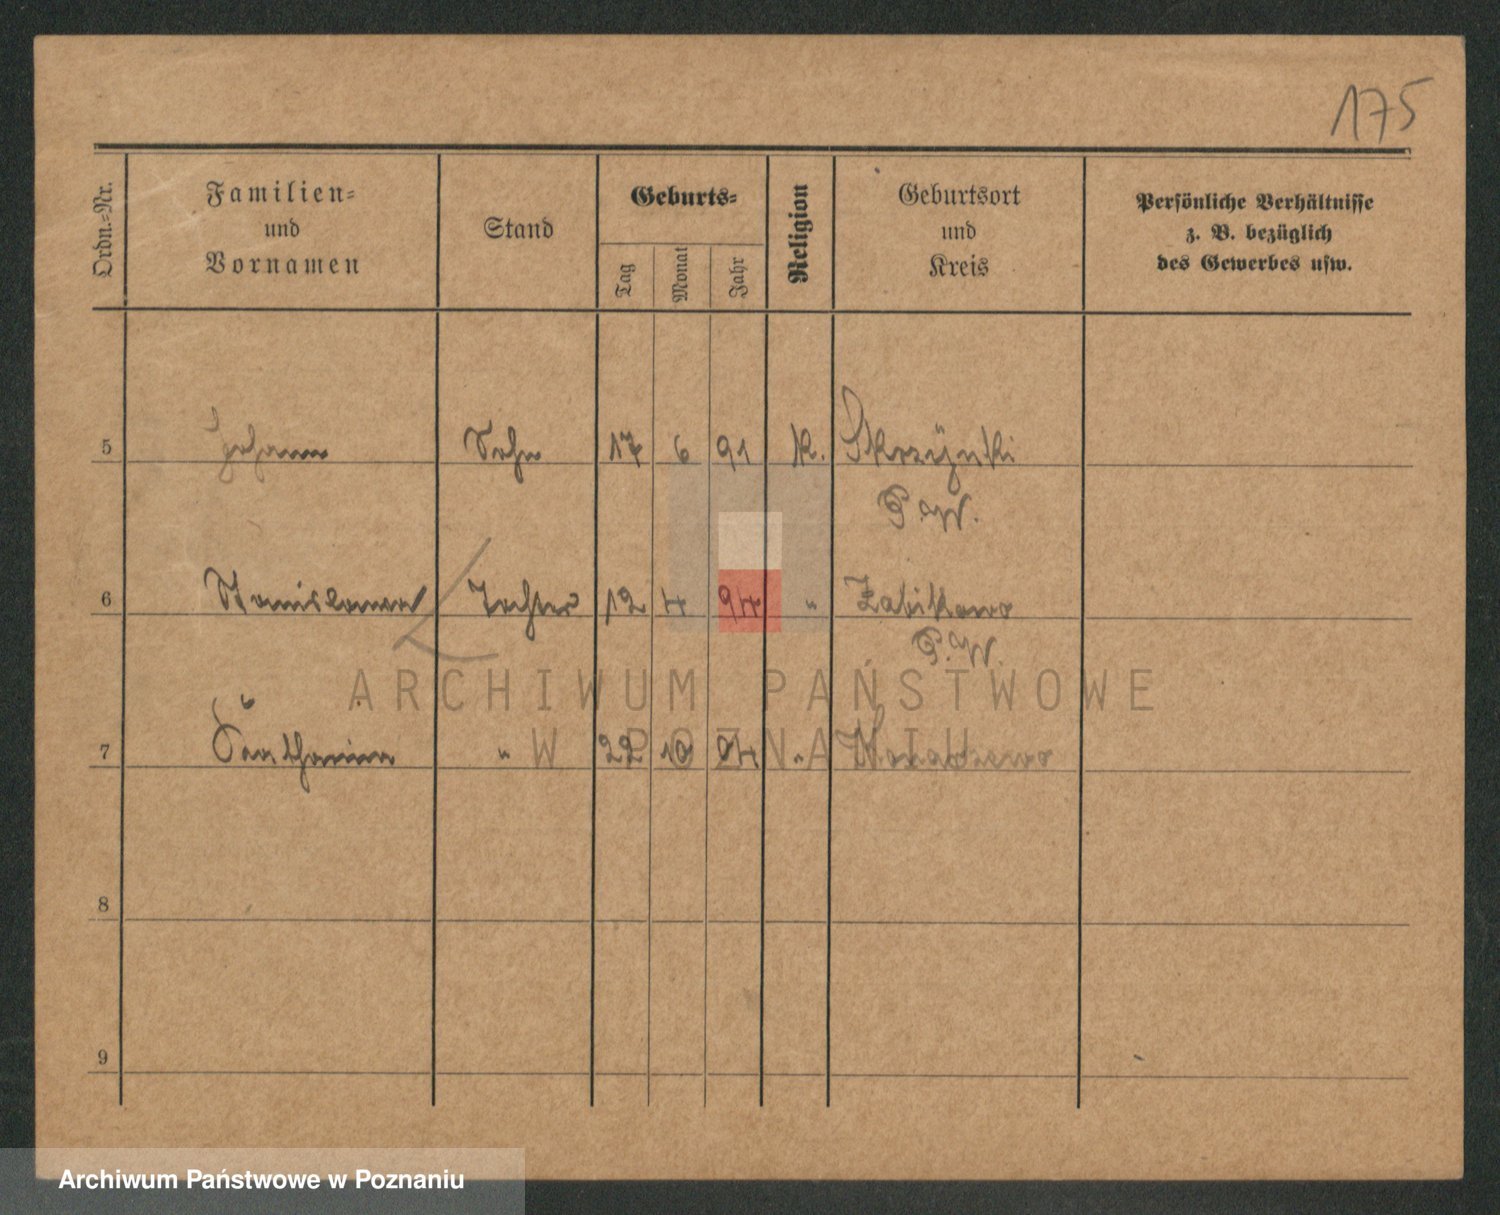 175
Ordn.-Nr.
Familien-
und
Vornamen
Stand
Geburts-
Tag
Monat
Jahr
Religion
Geburtsort
und
Kreis
Persönliche Verhältnisse
z. B. bezüglich
des Gewerbes usw.
5 Johann Sohn 17 6 91 K. Skrzynki
P. W.
6 Stanislawa Tochter 12 4 94 " Zabikowo
P. W.
ARCHIWUM PAŃSTWOWE
W POZNANIU
7 Katharina " 22 10 04 "
8
9
Archiwum Państwowe w Poznaniu